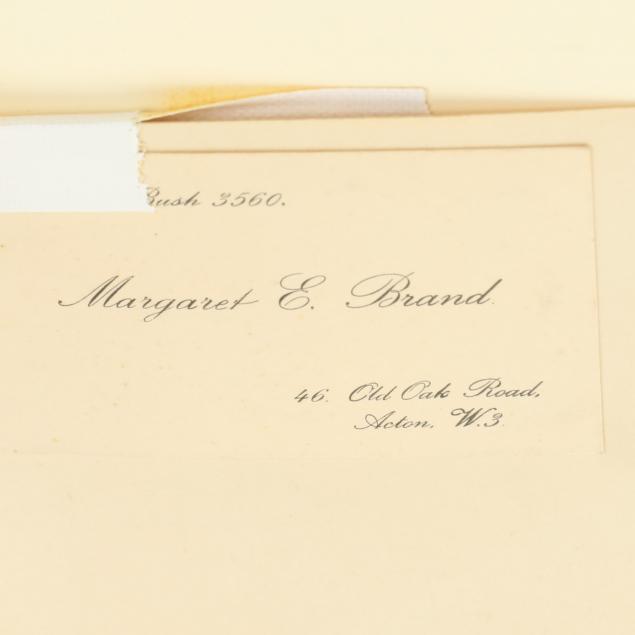 Bush 3560.
Margaret E. Brand.
46. Old Oak Road,
Acton. W.3.